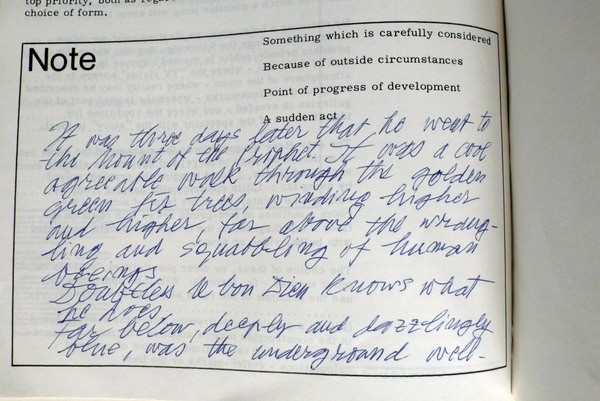 top priority, both as
choice of form.
Note
Something which is carefully considered
Because of outside circumstances
Point of progress of development
A sudden act
It was three days later that he went to
the Mount of the Prophet. It was a cool
agreeable walk through the golden
green fir trees, winding higher
and higher, far above the wrang-
ling and squabbling of human
beeings.
Doubtless le bon Dieu knows what
he does.
Far below, deeply and dazzlingly
blue, was the underground well-